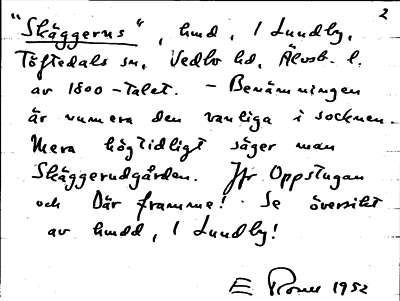 2
"Skäggerns", hmd, 1 Lundby,
Töftedals sn, Vedbo hd, Älvsb. l.
av 1800-talet. - Benämningen
är numera den vanliga i socknen.
Mera högtidligt säger man
Skäggerudgården. Jfr Oppstugan
och Där framme! Se översikt
av hmdd, 1 Lundby!
E 1952